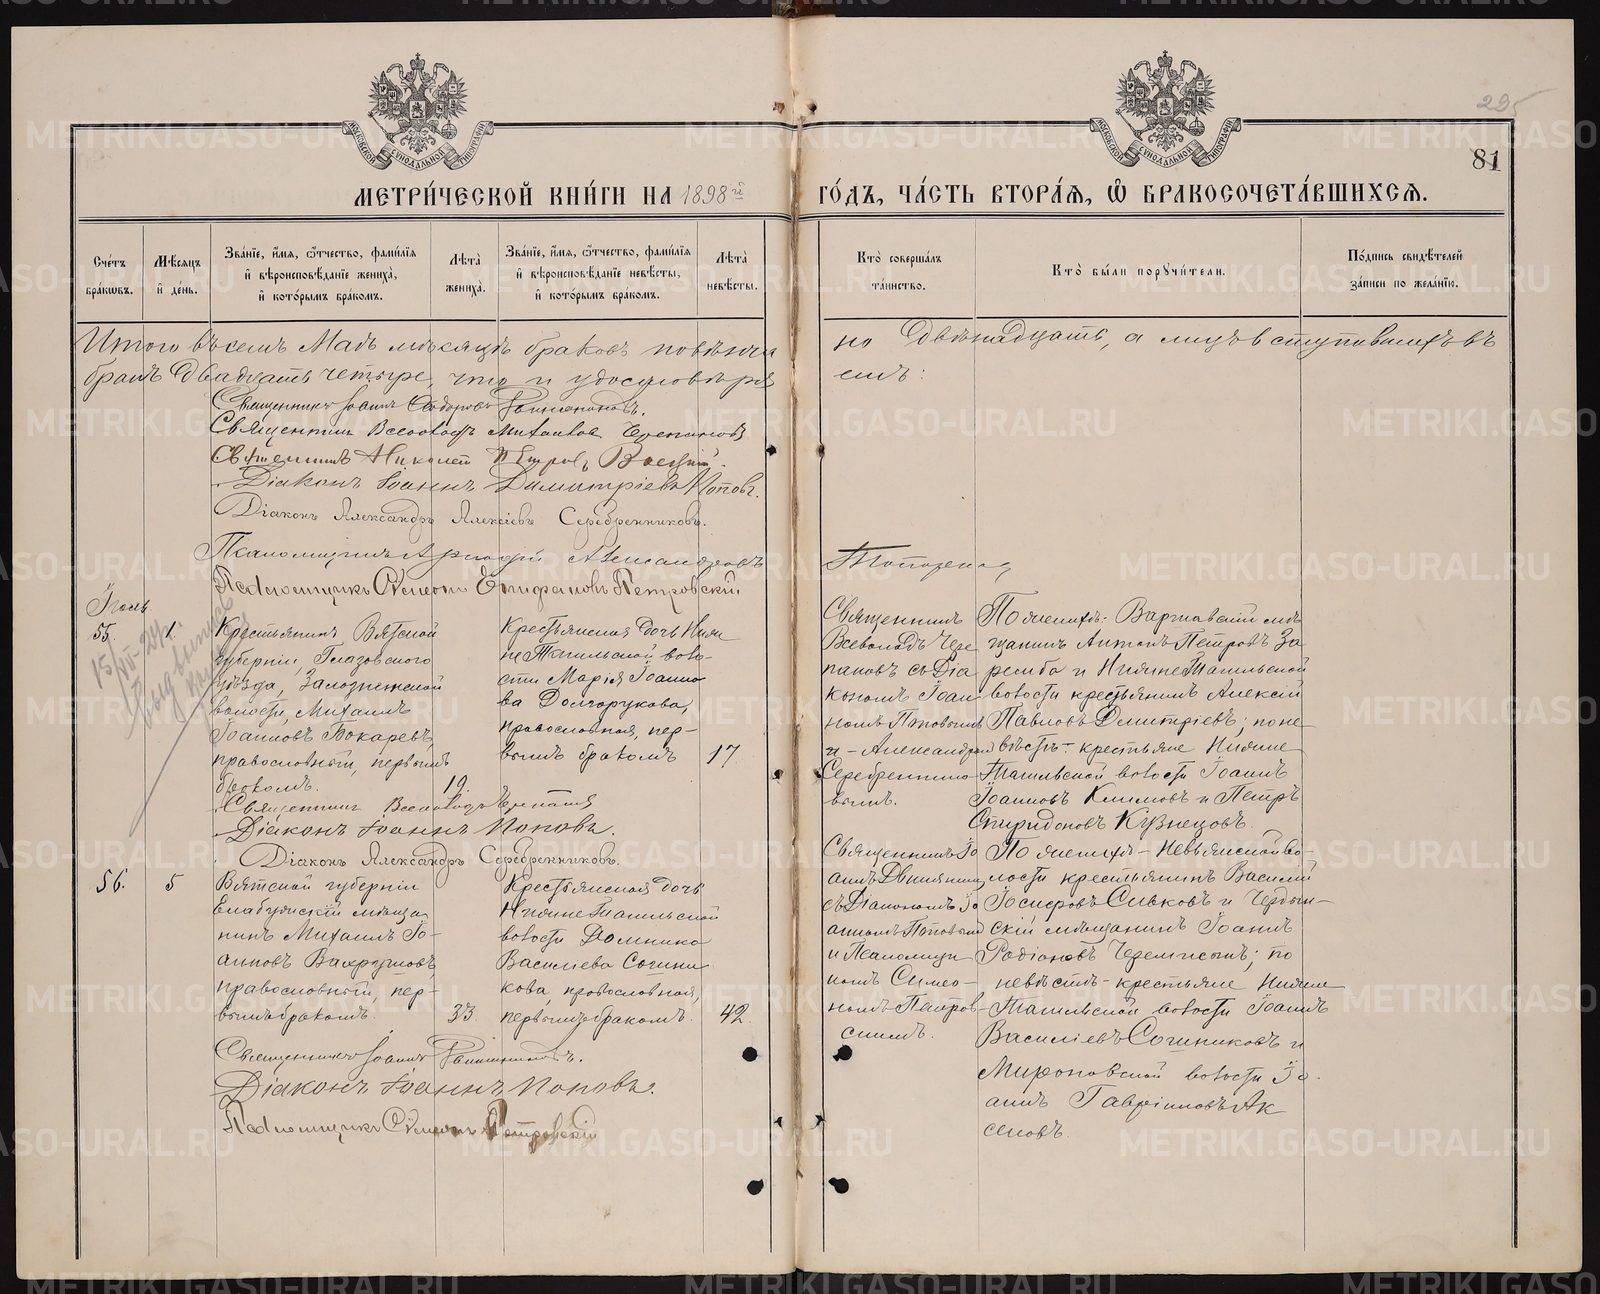 295
81
МОСКОВСКОЙ СУНОДАЛЬНОЙ ТИПОГРАФІИ
МОСКОВСКОЙ СУНОДАЛЬНОЙ ТИПОГРАФІИ
МЕТРИ́ЧЕСКОЙ КНИ́ГИ НА 1898й ГО́ДЪ, ЧА́СТЬ ВТОРА́Я, Ѡ҆ БРАКОСОЧЕТА́ВШИХСЯ.
Сче́тъ бра́кѡвъ.
Мѣ́сяцъ и҆ де́нь.
Зва́нїе, и҆́мя, ѻ҆́тчество, фами́лїя и҆ вѣроисповѣ́данїе жениха̀, и҆ кото́рымъ бра́комъ.
Лѣ́та жениха̀.
Зва́нїе, и҆́мя, ѻ҆́тчество, фами́лїя и҆ вѣроисповѣ́данїе невѣ́сты, и҆ кото́рымъ бра́комъ.
Лѣ́та невѣ́сты.
Кто̀ соверша́лъ та́инство.
Кто̀ бы́ли порꙋчи́тели.
По́дпись свидѣ́телей за́писи по жела́нїю.
Итого въ семъ Маѣ мѣсяцѣ браковъ повѣнча
но двѣнадцать, а лицъ вступившихъ въ
бракъ двадцать четыре, что и удостовѣря
емъ:
Священникъ Іоаннъ
Священникъ Всеволодъ Михаиловъ Черепановъ
Священникъ Николай Петровъ
Діаконъ Іоаннъ Димитріевъ Поповъ.
Діаконъ Александръ Алексіевъ Серебренниковъ.
Псаломщикъ Аркадій Александровъ
Топорковъ
Псаломщикъ Симеонъ Епифановъ Петровскій
Іюль
55.
1.
Крестьянинъ Вятской
губерніи, Глазовскаго
уѣзда, Залазнинской
волости, Михаилъ
Іоанновъ Бокаревъ,
православный, первымъ
бракомъ.
19.
Крестьянская дочь Ниж
не Тагильской воло-
сти Марія Іоанно
ва Долгорукова,
православная, пер-
вымъ бракомъ
17
Священникъ
Всеволодъ Чере
пановъ съ Діа
кономъ Іоан
номъ Поповымъ
и Александромъ
Серебреннико
вымъ.
По женихѣ: Варнавскій мѣ
щанинъ Антонъ Петровъ За
ремба и Нижне Тагильской
волости крестьянинъ Алексій
Павловъ Дмитріевъ; по не
вѣстѣ - крестьяне Нижне
Тагильской волости Іоаннъ
Іоанновъ Климовъ и Петръ
Спиридоновъ Кузнецовъ.
Священникъ Всеволодъ Черепановъ
Діаконъ Іоаннъ Поповъ.
Діаконъ Александръ Серебренниковъ.
56.
5
Вятской губерніи
Елабужскій мѣща
нинъ Михаилъ Іо-
анновъ Вахрушевъ
православный, пер-
вымъ бракомъ.
33.
Крестьянская дочь
Нижне Тагильской
волости Домника
Василіева Согини
кова, православная,
первымъ бракомъ.
42.
Священникъ Іо
аннъ
съ Діакономъ Іо
анномъ Поповымъ
и Псаломщи
комъ Симео-
номъ Петров
скимъ.
По женихѣ - Невьянской во-
лости крестьянинъ Василій
Іосифовъ Сивковъ и Чердын-
скій мѣщанинъ Іоаннъ
Родіоновъ Черемныхъ; по
невѣстѣ - крестьяне Нижне
Тагильской волости Іоаннъ
Василіевъ Согиниковъ и
Мироновской волости Іо-
аннъ Гавріиловъ Ак
сеновъ.
Священникъ Іоаннъ
Діаконъ Іоаннъ Поповъ.
Псаломщикъ Симеонъ Петровскій
METRIKI.GASO-URAL.RU